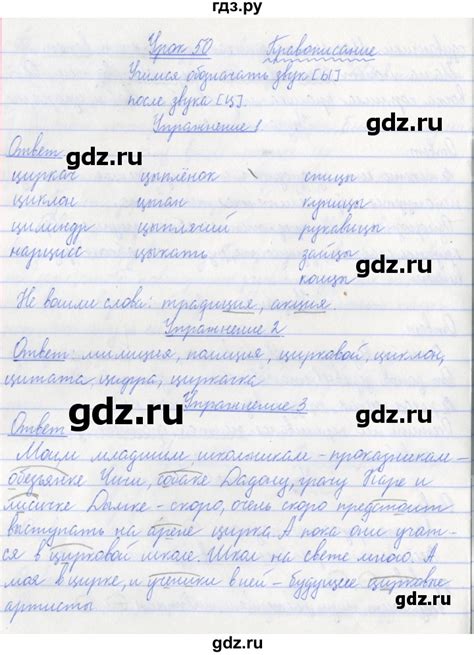 гдз.ру
Урок 50 Правописание
Учимся обозначать звук [ы]
после звука [ц].
Упражнение 1
Ответ
gdz.ru gdz.ru
циркач цыплёнок спицы
циклон цыган курицы
цилиндр цыплячий рукавицы
нарцисс цыкать зайцы
концы
gdz.ru gdz.ru
Не вошли слова: традиция, акция.
Упражнение 2
Ответ: милиция, полиция, цирковой, циклон,
цитата, цифра, циркачка
gdz.ru gdz.ru
Упражнение 3
Ответ
Моим младшим школьникам - проказникам -
обезьянке Чиги, собаке Дадону, грачу Паре и
лисичке Дымке - скоро, очень скоро предстоит
выступать на арене цирка. А пока они учат-
ся в цирковой школе. Школ на свете много. А
моя в цирке, и ученики в ней - будущие цирковые
артисты
gdz.ru gdz.ru
gdz.ru gdz.ru